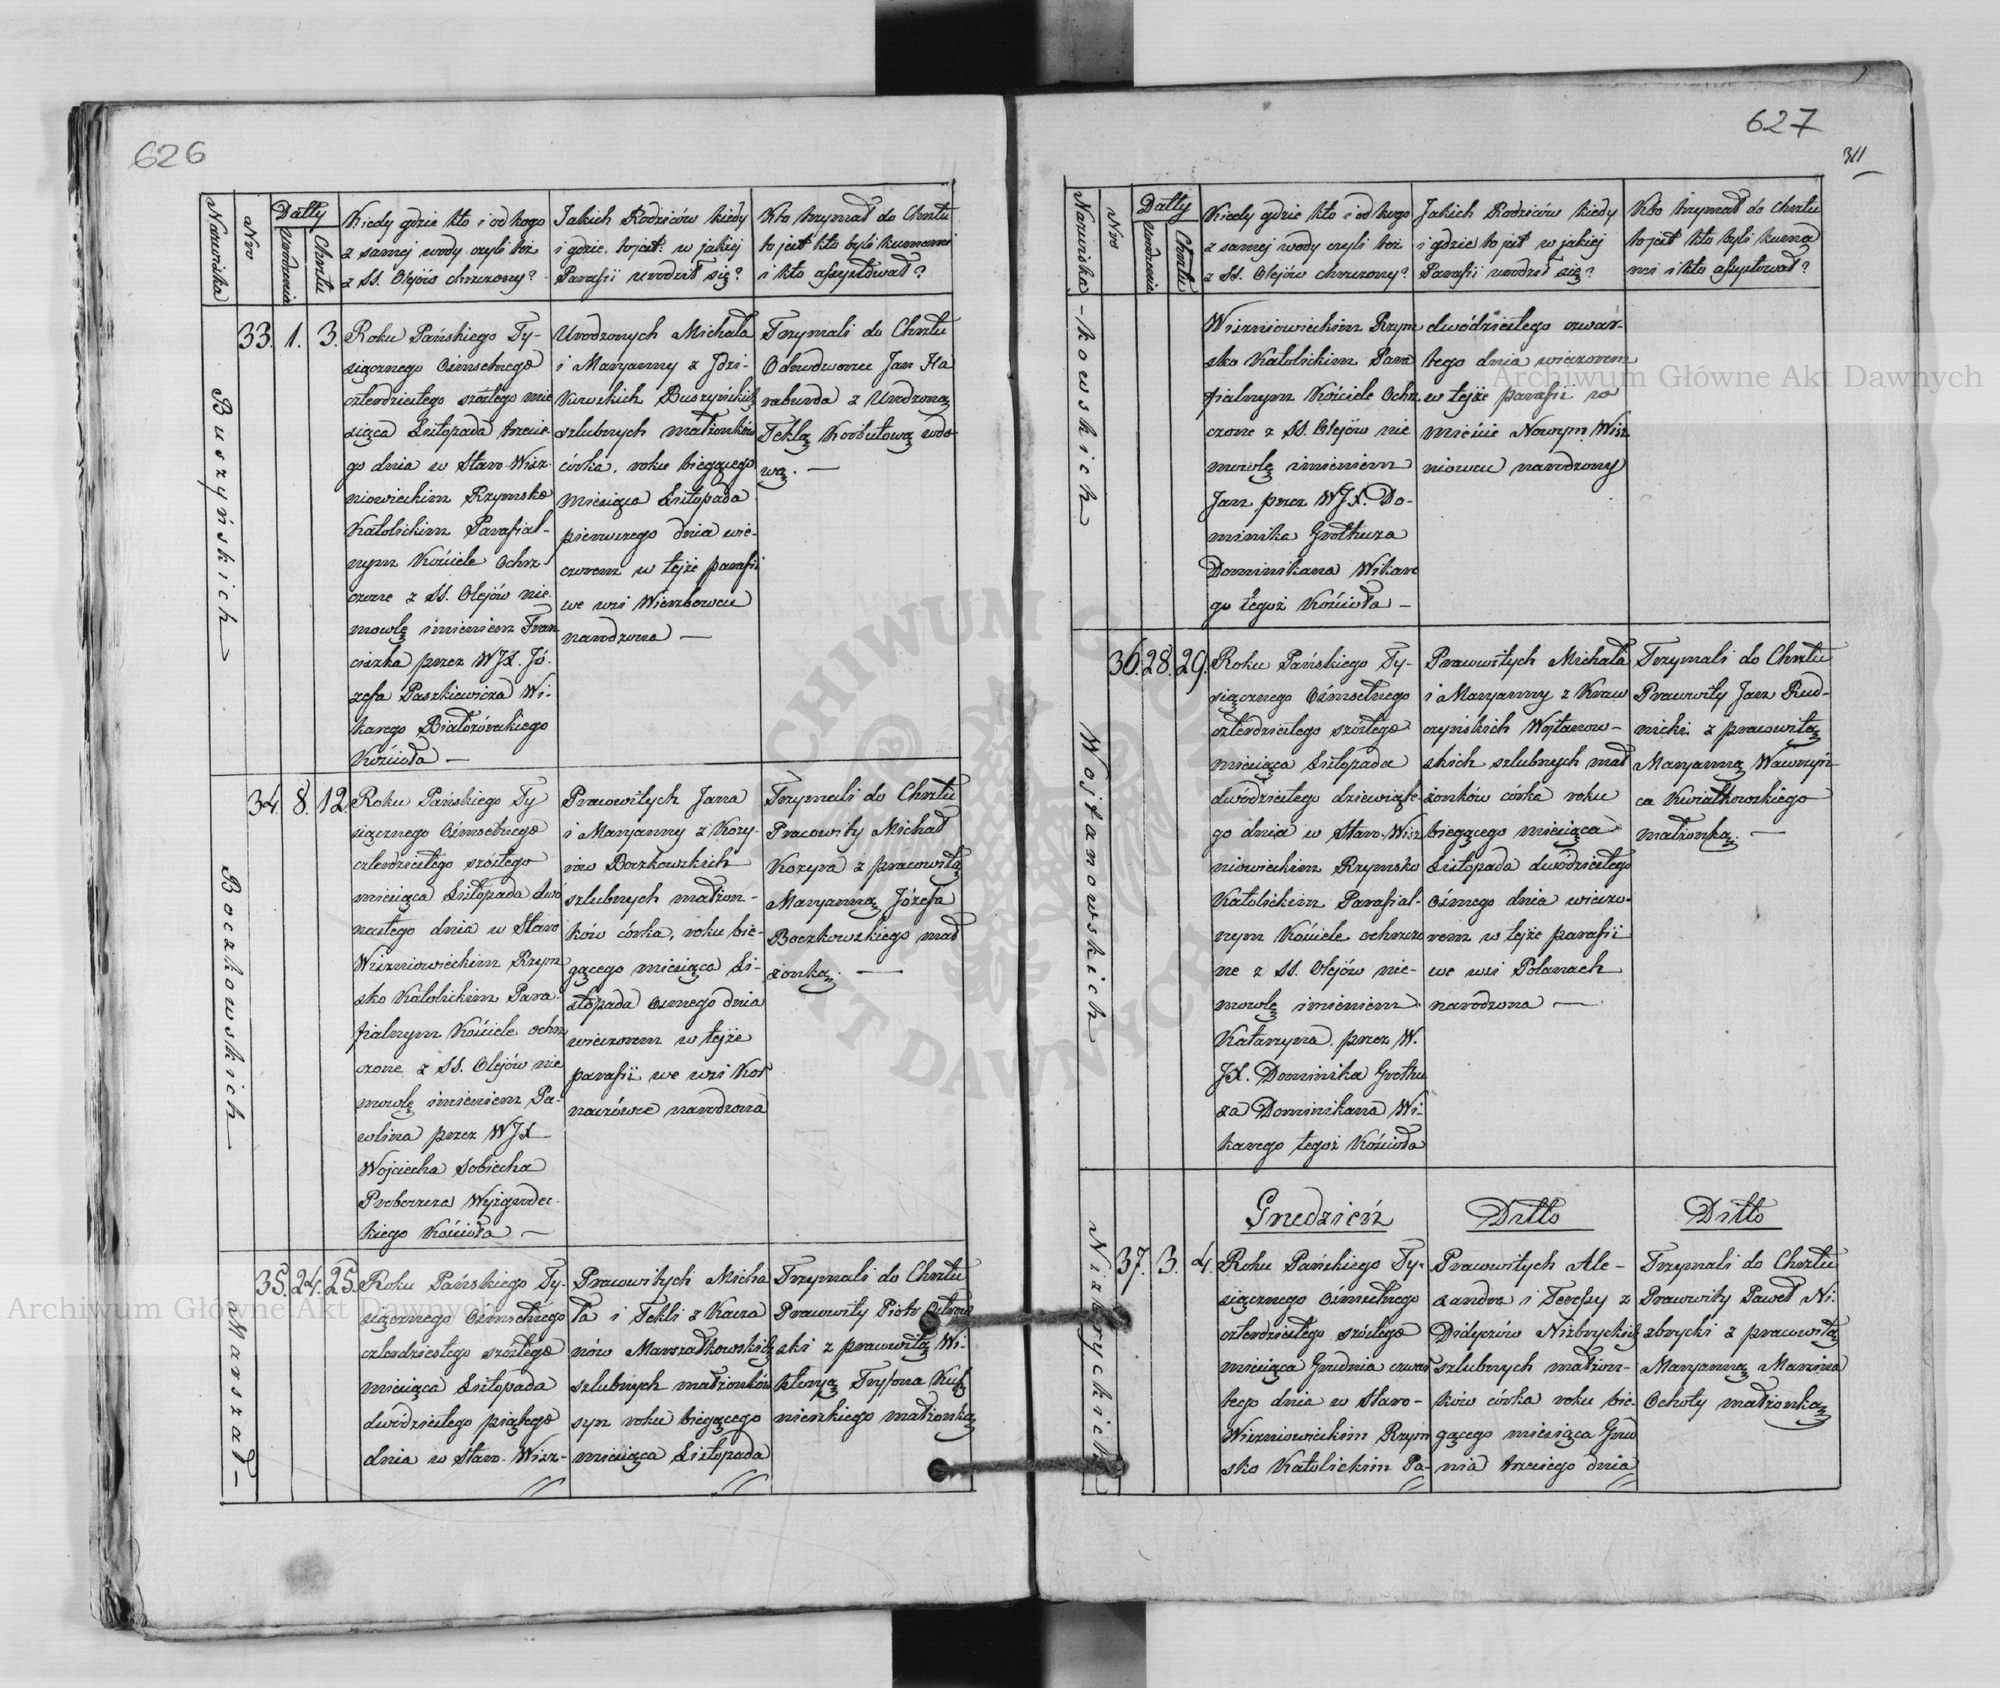 626
Nazwiska
Nro
Datty
urodzenia
Chrztu
Kiedy gdzie kto i od kogo
z samej wody czyli też
z SS. Olejów chrzczony?
Jakich Rodziców kiedy
i gdzie, to jest: w jakiej
Parafii urodził się?
Kto trzymał do Chrztu
to jest kto byli kumami
i kto assystował?
Buszyńskich
33. 1. 3.
Roku Pańskiego Ty-
siącznego Ośmsetnego
czterdziestego szóstego mie
siąca Listopada trzecie-
go dnia w Staro-Wisz-
niowieckim Rzymsko
Katolickim Parafial-
nym Kościele Ochrz-
czone z SS. Olejów nie-
mowlę imieniem Fran
ciszka przez WJX. Jó-
zefa Paszkiewicza Wi-
karego Białozórskiego
Kościoła —
Urodzonych Michała
i Maryanny z Idzi-
kowskich Buszyńskich
szlubnych małżonków
córka, roku biegącego
Miesiąca Listopada
pierwszego dnia wie-
czorem w tejże parafii
we wsi Wierzbowcu
narodzona —
Trzymali do Chrztu
Odnodworzec Jan Ha
raburda z Urodzoną
Teklą Korbutową wdo
wą. —
Boczkowskich
34. 8. 12.
Roku Pańskiego Ty
siącznego Ośmsetnego
czterdziestego szóstego
miesiąca Listopada dwó
nastego dnia w Staro
Wiszniowieckim Rzym
sko Katolickim Para-
fialnym Kościele ochrz
czone z SS. Olejów nie
mowlę imieniem Pa-
wlina przez WJX
Wojciecha Sobiecha
Proboszcza Wyżgrodec-
kiego Kościoła —
Pracowitych Jana
i Maryanny z Kozy-
rów Boczkowskich
szlubnych małżon-
ków córka, roku bie-
gącego miesiąca Li-
stopada ósmego dnia
wieczorem w tejże
parafii we wsi Kor
naczówce narodzona
Trzymali do Chrztu
Pracowity Michał
Kozyra z pracowitą
Maryanną Józefa
Boczkowskiego mał
żonką. —
Marszał-
35. 24. 25.
Roku Pańskiego Ty-
siącznego Ośmsetnego
czterdziestego szóstego
miesiąca Listopada
dwódziestego piątego
dnia w Staro-Wisz-
Pracowitych Micha
ła i Tekli z Kacza
nów Marszałkowskich
szlubnych małżonków
syn roku biegącego
miesiąca Listopada
Trzymali do Chrztu
Pracowity Piotr
ski z pracowitą Wi-
ktoryą Tryfona
nierskiego małżonką
627
311
Nazwiska
Nro
Datty
urodzenia
Chrztu
Kiedy gdzie kto i od kogo
z samej wody czyli też
z SS. Olejów chrzczony?
Jakich Rodziców kiedy
i gdzie to jest w jakiej
Parafii urodził się?
Kto trzymał do Chrztu
to jest kto byli kuma
mi i kto assystował?
-kowskich
Wiszniowieckim Rzym
sko Katolickim Para
fialnym Kościele Ochrz
czone z SS. Olejów nie
mowlę imieniem
Jan przez WJX. Do-
minika Grothuza
Dominikana Wikare
go tegoż Kościoła —
dwódziestego czwar-
tego dnia wieczorem
w tejże parafii w
mieście Nowym Wisz
niowcu narodzony
Wojtanowskich
36. 28. 29.
Roku Pańskiego Ty-
siącznego Ośmsetnego
czterdziestego szóstego
miesiąca Listopada
dwódziestego dziewiąte-
go dnia w Staro-Wisz
niowieckim Rzymsko
Katolickim Parafial-
nym Kościele ochrzczo
ne z SS. Olejów nie-
mowlę imieniem
Katarzyna, przez W.
JX. Dominika Grothu
za Dominikana Wi-
karego tegoż Kościoła
Pracowitych Michała
i Maryanny z Kraw
czyńskich Wojtanow-
skich szlubnych mał
żonków córka roku
biegącego miesiąca
Listopada dwódziestego
ósmego dnia wieczo-
rem w tejże parafii
we wsi Polanach
narodzona —
Trzymali do Chrztu
Pracowity Jan Rud-
nicki z pracowitą
Maryanną Wawrzyń
ca Kwiatkowskiego
małżonką. —
Grudzień
Ditto
Ditto
Nizbryckich
37. 3. 4.
Roku Pańskiego Ty-
siącznego Ośmsetnego
czterdziestego szóstego
miesiąca Grudnia czwar
tego dnia w Staro-
Wiszniowieckim Rzym
sko Katolickim Pa-
Pracowitych Ale-
xandra i Teressy z
Didyczów Nizbryckich
szlubnych małżon-
ków córka roku bie
gącego miesiąca Grud
nia trzeciego dnia
Trzymali do Chrztu
Pracowity Paweł Ni-
zbrycki z pracowitą
Maryanną Marcina
Ochoty małżonką
Archiwum Główne Akt Dawnych
Archiwum Główne Akt Dawnych